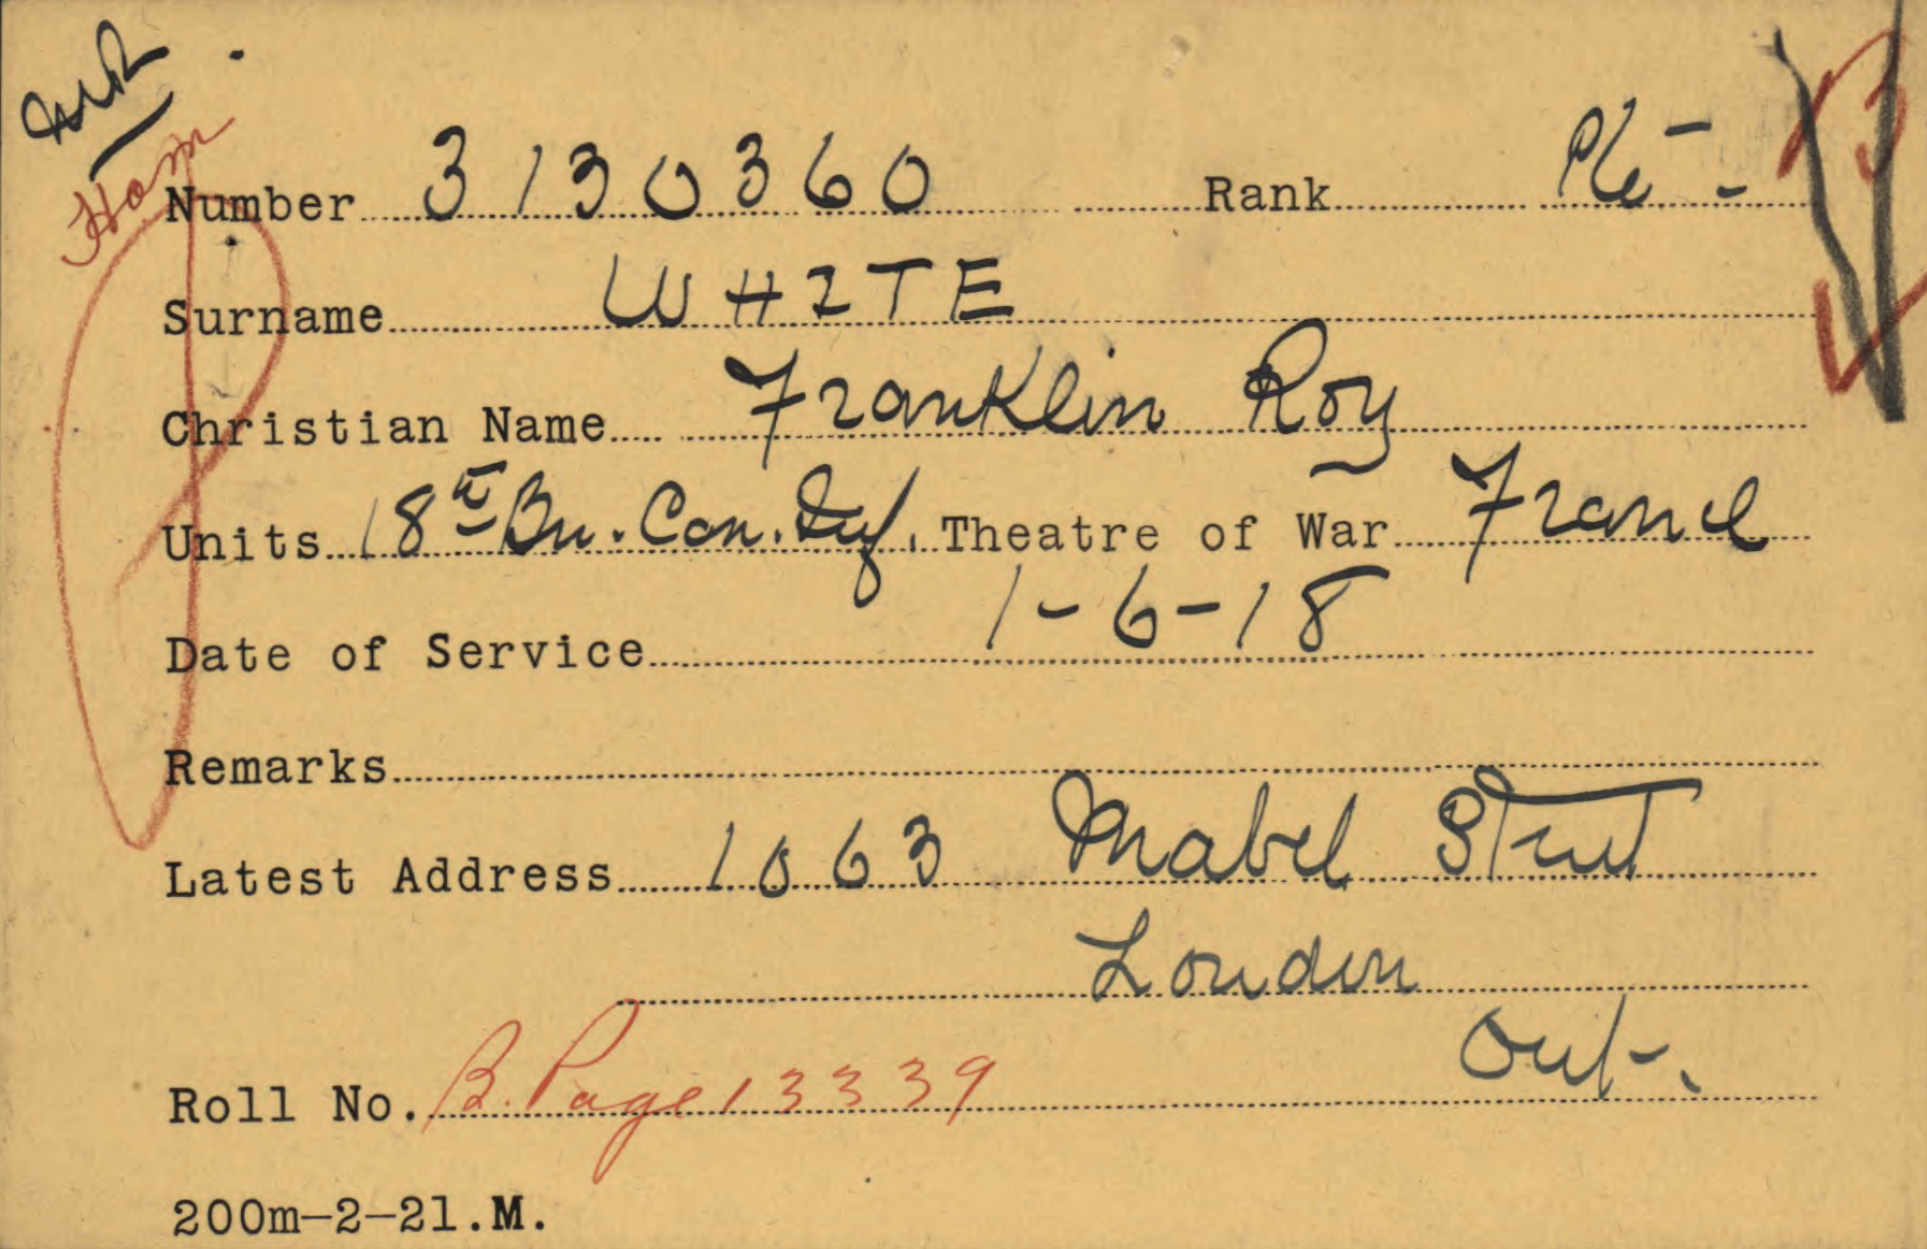 Ham
Number 3130360 Rank Pte-.
Surname WHITE
Christian Name Franklin Roy
Units 18th Bn. Can. Inf. Theatre of War France
Date of Service 1-6-18
Remarks
Latest Address 1063 Mabel Street
London
Ont-.
Roll No. B. Page 13339
200m-2-21.M.